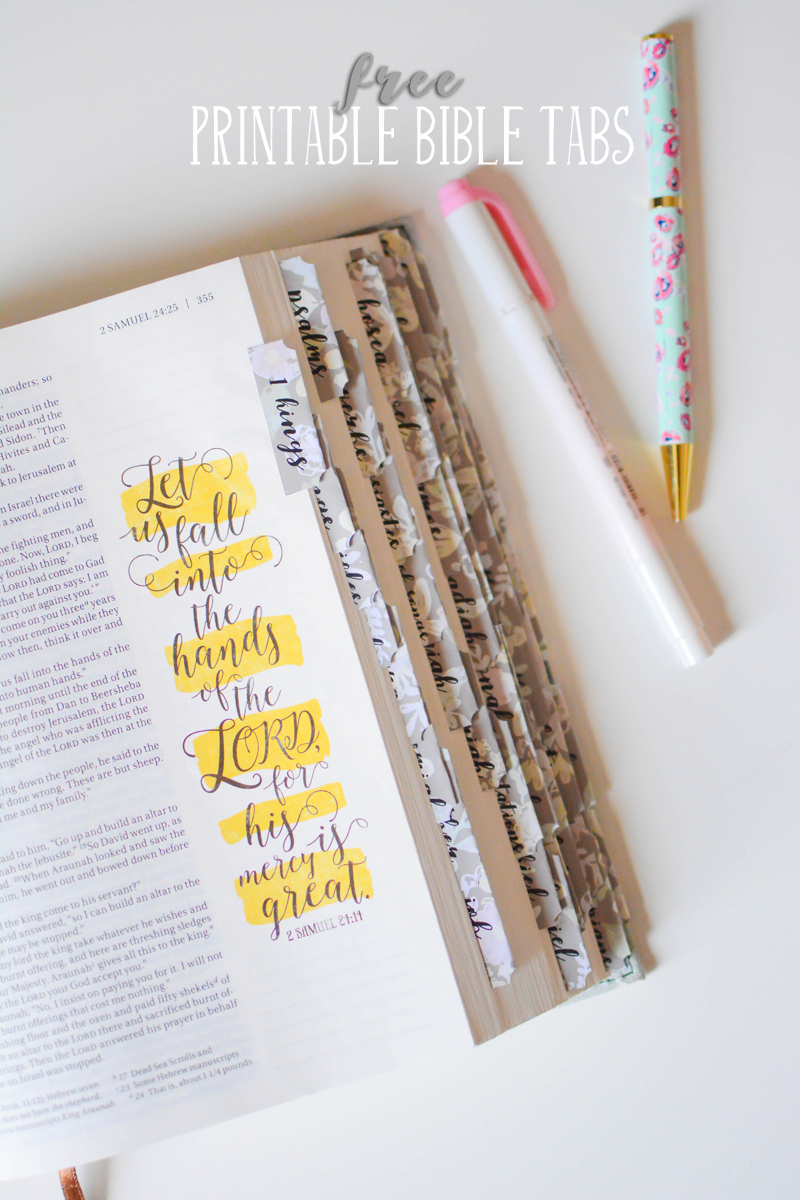 free
PRINTABLE BIBLE TABS
2 SAMUEL 24:25 | 355
psalms
hosea
1 kings
job
Let
us fall
into
the
hands
of the
LORD,
for
his is
mercy
great.
2 SAMUEL 24:14
manders; so
e town in the
Gilead and the
d Sidon. Then
Hivites and Ca-
ah.
k to Jerusalem at
n Israel there were
a sword, and in Ju-
he fighting men, and
one. Now, LORD, I beg
y foolish thing."
LORD had come to Gad
hat the LORD says: I am
arry out against you."
come on you three years
n your enemies while they
ow then, think it over and
us fall into the hands of the
nto human hands."
t morning until the end of the
people from Dan to Beersheba
to destroy Jerusalem, the LORD
the angel who was afflicting the
angel of the LORD was then at the
king down the people, he said to the
e done wrong. These are but sheep.
d me and my family."
said to him, "Go up and build an altar to
nah the Jebusite." 19So David went up, as
ad. 20When Araunah looked and saw the
him, he went out and bowed down before
d the king come to his servant?"
answered, "so I can build an altar to the
e may be stopped."
ny lord the king take whatever he wishes and
burnt offering, and here are threshing sledges
ur Majesty, Araunah gives all this to the king."
y the LORD your God accept you."
aunah, "No, I insist on paying you for it. I will not
burnt offerings that cost me nothing."
shing floor and the oxen and paid fifty shekels d of
ilt an altar to the LORD there and sacrificed burnt of-
erings. Then the LORD answered his prayer in behalf
e on Israel was stopped.
Hebrew seven
does not have the shepherd.
manuscripts King Araunah
b 17 Dead Sea Scrolls and
c 23 Some Hebrew manuscripts
d 24 That is, about 1 1/4 pounds